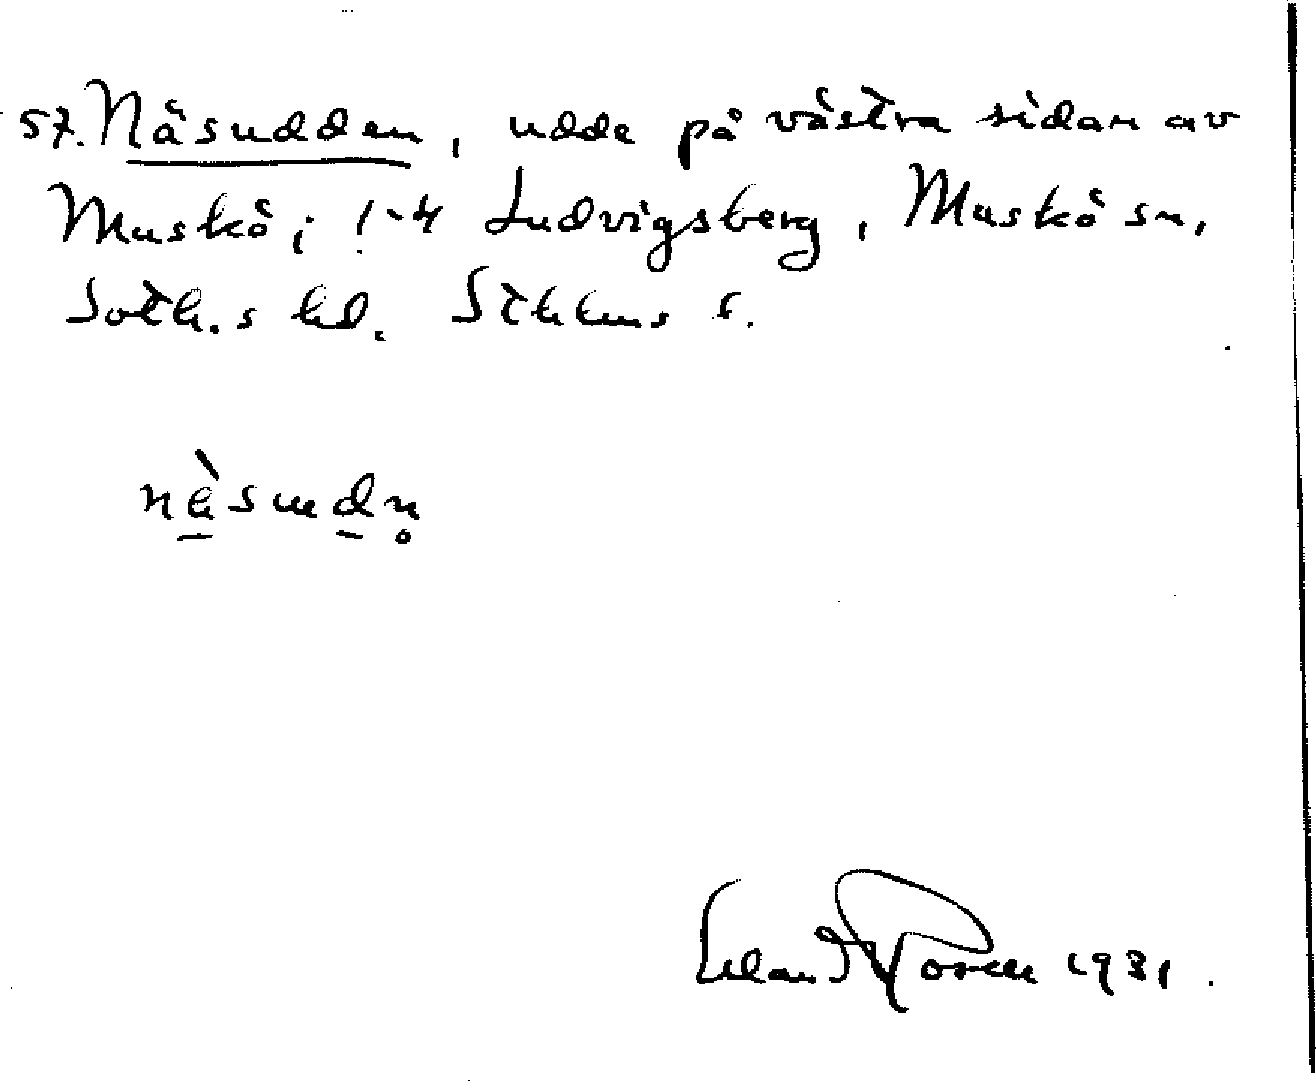 57. Näsudden, udde på västra sidan av
Muskö; !-4 Ludvigsberg, Muskö sn,
Soth.s hd. Sthlms s.
näsudn̥
Erland Rosell 1931.